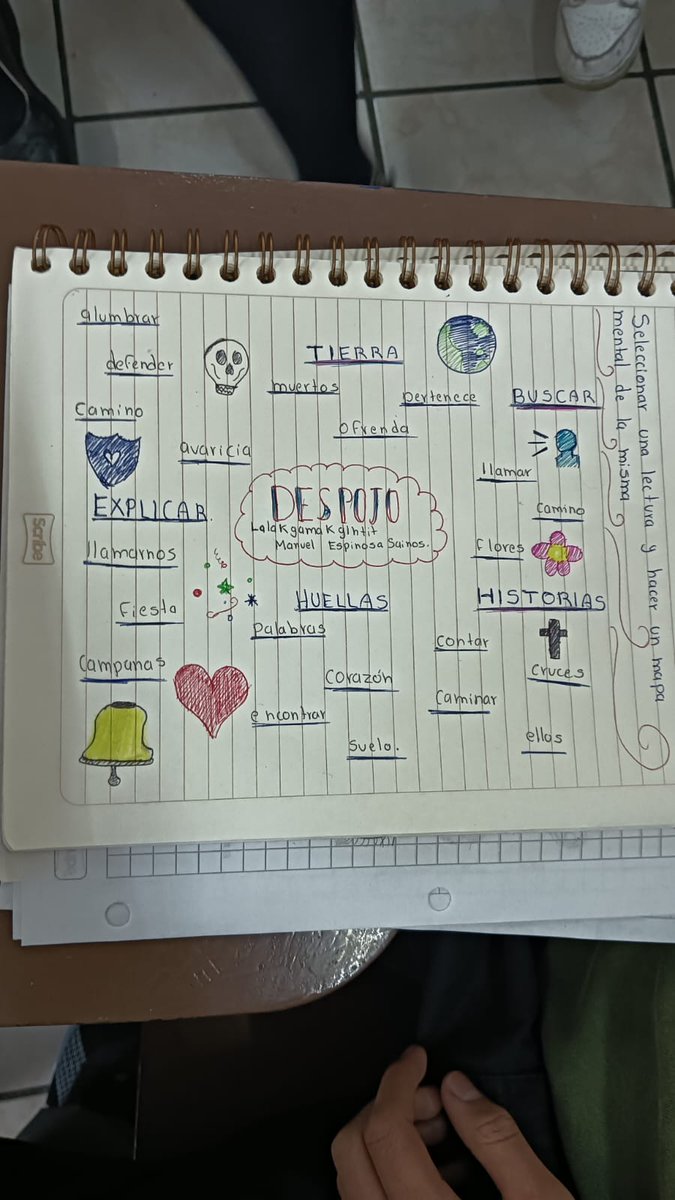 Seleccionar una lectura y hacer un mapa
mental de la misma
alumbrar
defender
camino
avaricia
EXPLICAR
llamarnos
Fiesta
campanas
TIERRA
muertos
pertenece
ofrenda
BUSCAR
llamar
camino
Flores
DESPOJO
LalaKgamaKgIntit
Manuel Espinosa Sainos.
HUELLAS
palabras
corazón
encontrar
suelo.
HISTORIAS
contar
cruces
caminar
ellos
Scribe